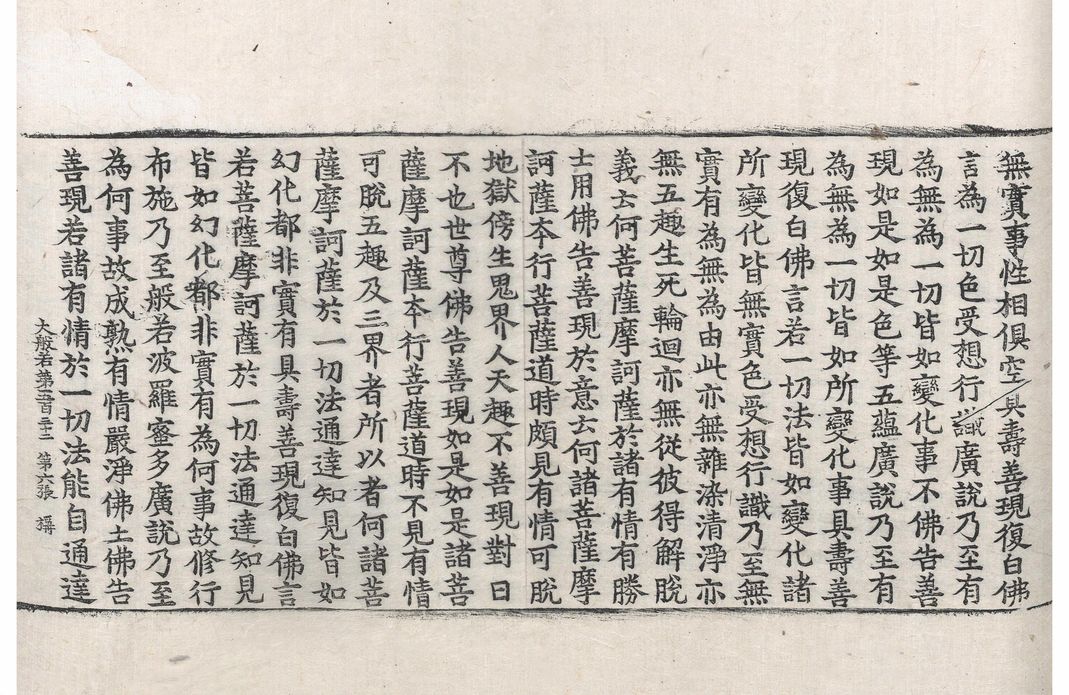 無實事性相俱空具壽善現復白佛
言為一切色受想行識廣說乃至有
為無為一切皆如變化事不佛告善
現如是如是色等五蘊廣說乃至有
為無為一切皆如所變化事具壽善
現復白佛言若一切法皆如變化諸
所變化皆無實色受想行識乃至無
實有為無為由此亦無雜染清淨亦
無五趣生死輪迴亦無從彼得解脫
義云何菩薩摩訶薩於諸有情有勝
士用佛告善現於意云何諸菩薩摩
訶薩夲行菩薩道時頗見有情可脫
地獄傍生鬼界人天趣不善現對曰
不也世尊佛告善現如是如是諸菩
薩摩訶薩夲行菩薩道時不見有情
可脫五趣及三界者所以者何諸菩
薩摩訶薩於一切法通達知見皆如
幻化都非實有具壽善現復白佛言
若菩薩摩訶薩於一切法通達知見
皆如幻化都非實有為何事故修行
布施乃至般若波羅蜜多廣說乃至
為何事故成熟有情嚴淨佛土佛告
善現若諸有情於一切法能自通達
大般若第五百 第六張